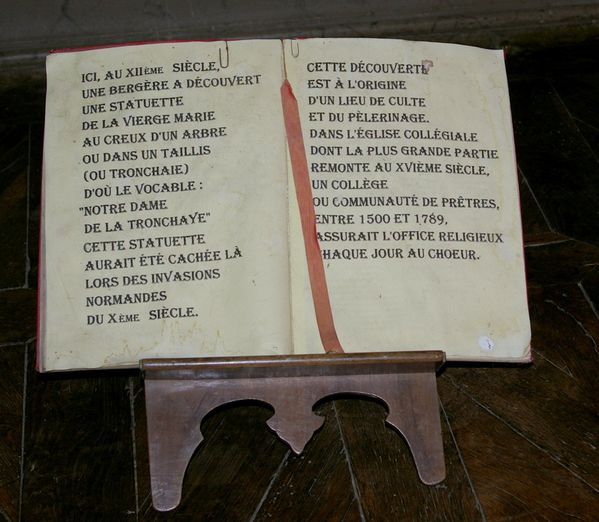 ICI, AU XIIÈME SIÈCLE,
UNE BERGÈRE A DÉCOUVERT
UNE STATUETTE
DE LA VIERGE MARIE
AU CREUX D'UN ARBRE
OU DANS UN TAILLIS
(OU TRONCHAIE)
D'OÙ LE VOCABLE :
"NOTRE DAME
DE LA TRONCHAYE"
CETTE STATUETTE
AURAIT ÉTÉ CACHÉE LÀ
LORS DES INVASIONS
NORMANDES
DU XÈME SIÈCLE.
CETTE DÉCOUVERTE
EST À L'ORIGINE
D'UN LIEU DE CULTE
ET DU PÈLERINAGE.
DANS L'ÉGLISE COLLÉGIALE
DONT LA PLUS GRANDE PARTIE
REMONTE AU XVIÈME SIÈCLE,
UN COLLÈGE
OU COMMUNAUTÉ DE PRÊTRES,
ENTRE 1500 ET 1789,
ASSURAIT L'OFFICE RELIGIEUX
CHAQUE JOUR AU CHOEUR.